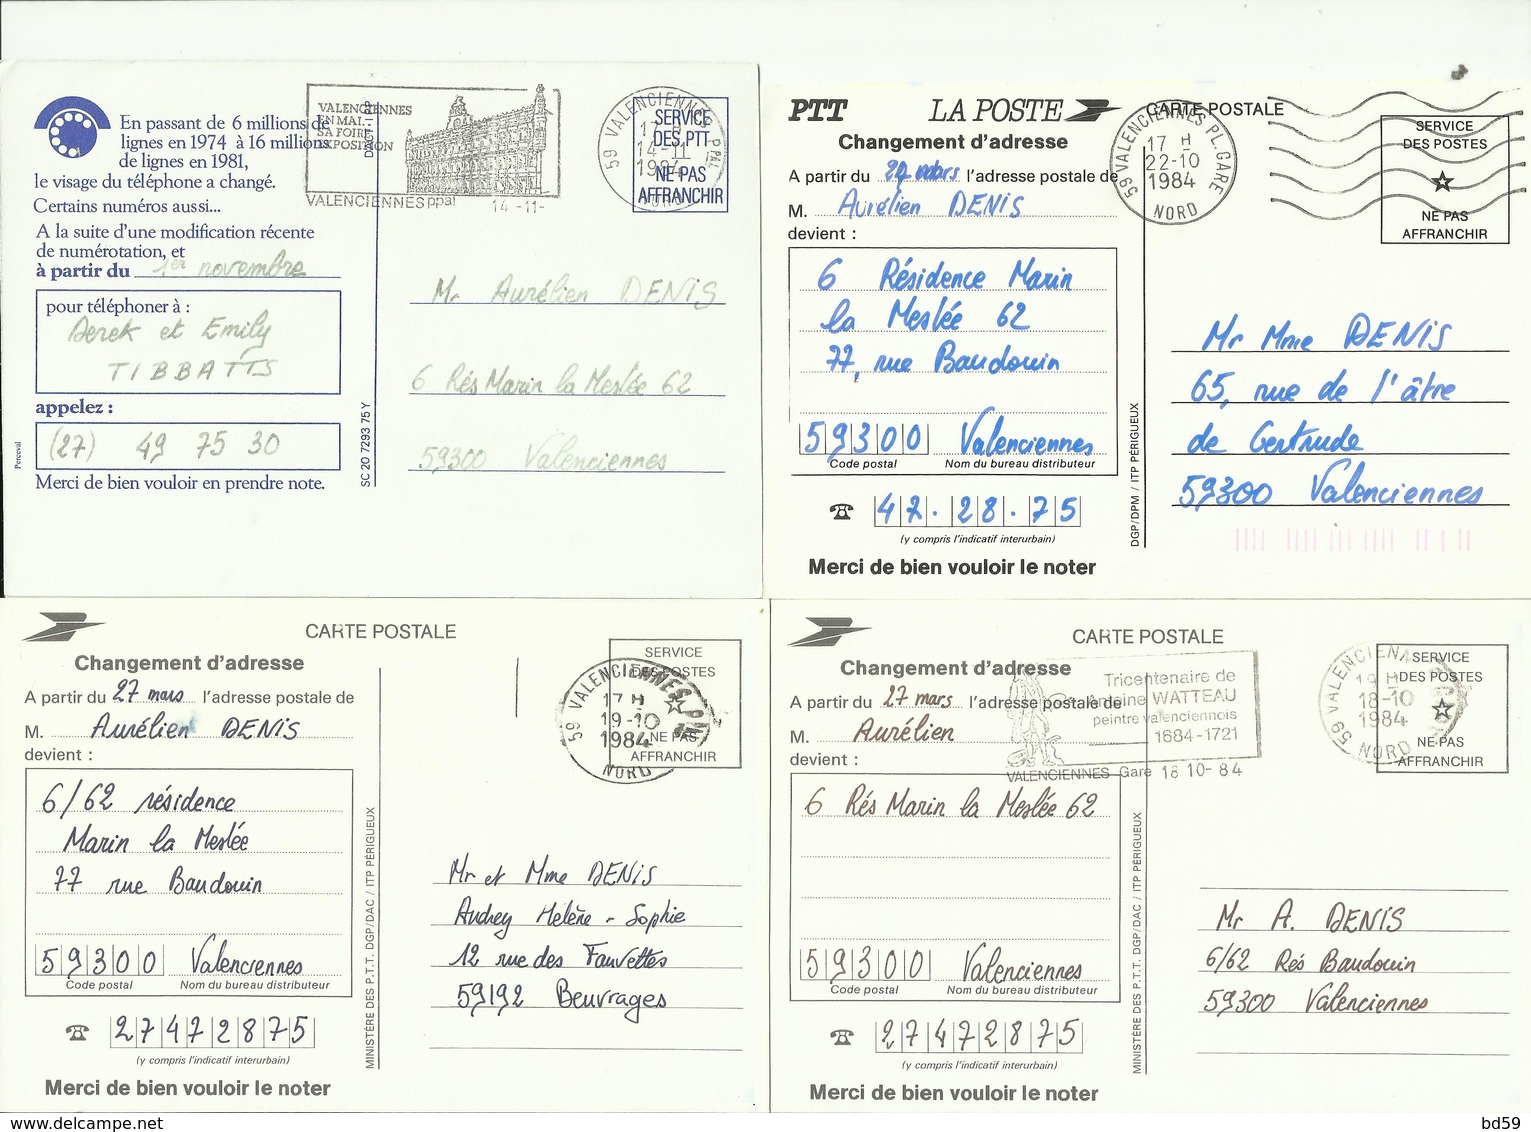 En passant de 6 millions de
lignes en 1974 à 16 millions
de lignes en 1981,
le visage du téléphone a changé.
Certains numéros aussi...
A la suite d'une modification récente
de numérotation, et
à partir du 1er novembre
pour téléphoner à :
Derek et Emily
TIBBATTS
appelez :
(27) 49 75 30
Merci de bien vouloir en prendre note.
Perceval
SC 20 7293 75 Y
VALENCIENNES
EN MAI...
SA FOIRE
EXPOSITION
VALENCIENNES ppal 14-11-
59 VALENCIENNES PPAL
17 H
14-11
1984
NORD
SERVICE
DES PTT
NE PAS
AFFRANCHIR
Mr Aurélien DENIS
6 Rés Marin la Meslée 62
59300 Valenciennes
PTT LA POSTE CARTE POSTALE
Changement d'adresse
A partir du mars l'adresse postale de
M. Aurélien DENIS
devient :
6 Résidence Marin
la Meslée 62
77, rue Baudouin
59300 Valenciennes
Code postal Nom du bureau distributeur
47.28.75
(y compris l'indicatif interurbain)
Merci de bien vouloir le noter
DGP/DPM / ITP PÉRIGUEUX
59 VALENCIENNES PL.GARE
17 H
22-10
1984
NORD
SERVICE
DES POSTES
NE PAS
AFFRANCHIR
Mr Mme DENIS
65, rue de l'âtre
de Gertrude
59300 Valenciennes
CARTE POSTALE
Changement d'adresse
A partir du 27 mars l'adresse postale de
M. Aurélien DENIS
devient :
6/62 résidence
Marin la Meslée
77 rue Baudouin
59300 Valenciennes
Code postal Nom du bureau distributeur
27472875
(y compris l'indicatif interurbain)
Merci de bien vouloir le noter
MINISTÈRE DES P.T.T. DGP/DAC / ITP PÉRIGUEUX
59 VALENCIENNES
17 H
19-10
1984
NORD
SERVICE
DES POSTES
NE PAS
AFFRANCHIR
Mr et Mme DENIS
Audrey Hélène - Sophie
12 rue des Fauvettes
59192 Beuvrages
CARTE POSTALE
Changement d'adresse
A partir du 27 mars l'adresse postale de
M. Aurélien
devient :
6 Rés Marin la Meslée 62
59300 Valenciennes
Code postal Nom du bureau distributeur
27472875
(y compris l'indicatif interurbain)
Merci de bien vouloir le noter
MINISTÈRE DES P.T.T. DGP/DAC / ITP PÉRIGUEUX
Tricentenaire de
Antoine WATTEAU
peintre valenciennois
1684-1721
VALENCIENNES Gare 18 10-84
59 VALENCIENNES
19 H
18-10
1984
NORD
SERVICE
DES POSTES
NE PAS
AFFRANCHIR
Mr A. DENIS
6/62 Rés Baudouin
59300 Valenciennes
www.delcampe.net
bd59